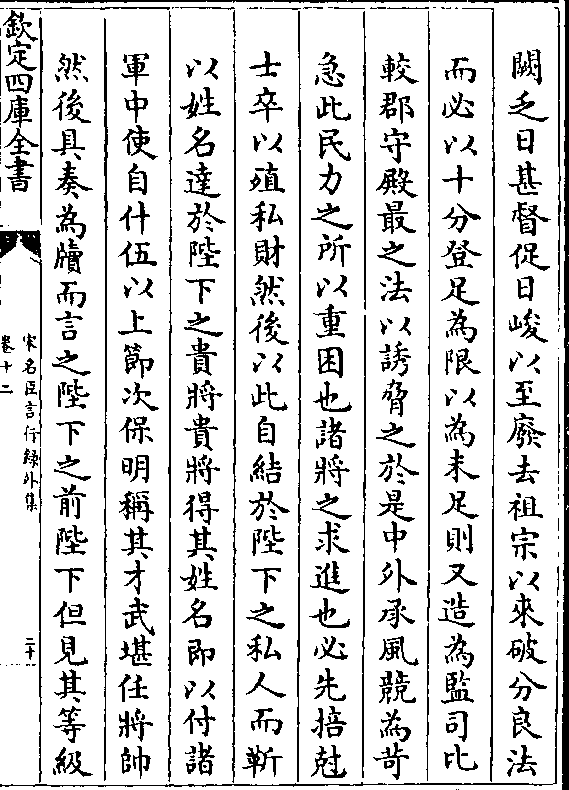 闕乏日甚督促日峻以至廢去祖宗以來破分良法
而必以十分登足為限以為未足則又造為監司比
較郡守殿最之法以誘脅之於是中外承風競為苛
急此民力之所以重困也諸將之求進也必先掊尅
士卒以殖私財然後以此自結於陛下之私人而蘄
以姓名達於陛下之貴將貴將得其姓名即以付諸
軍中使自什伍以上節次保明稱其才武堪任將帥
然後具奏為牘而言之陛下之前陛下但見其等級
欽定四庫全書
宋名臣言行録外集
卷十二
二十